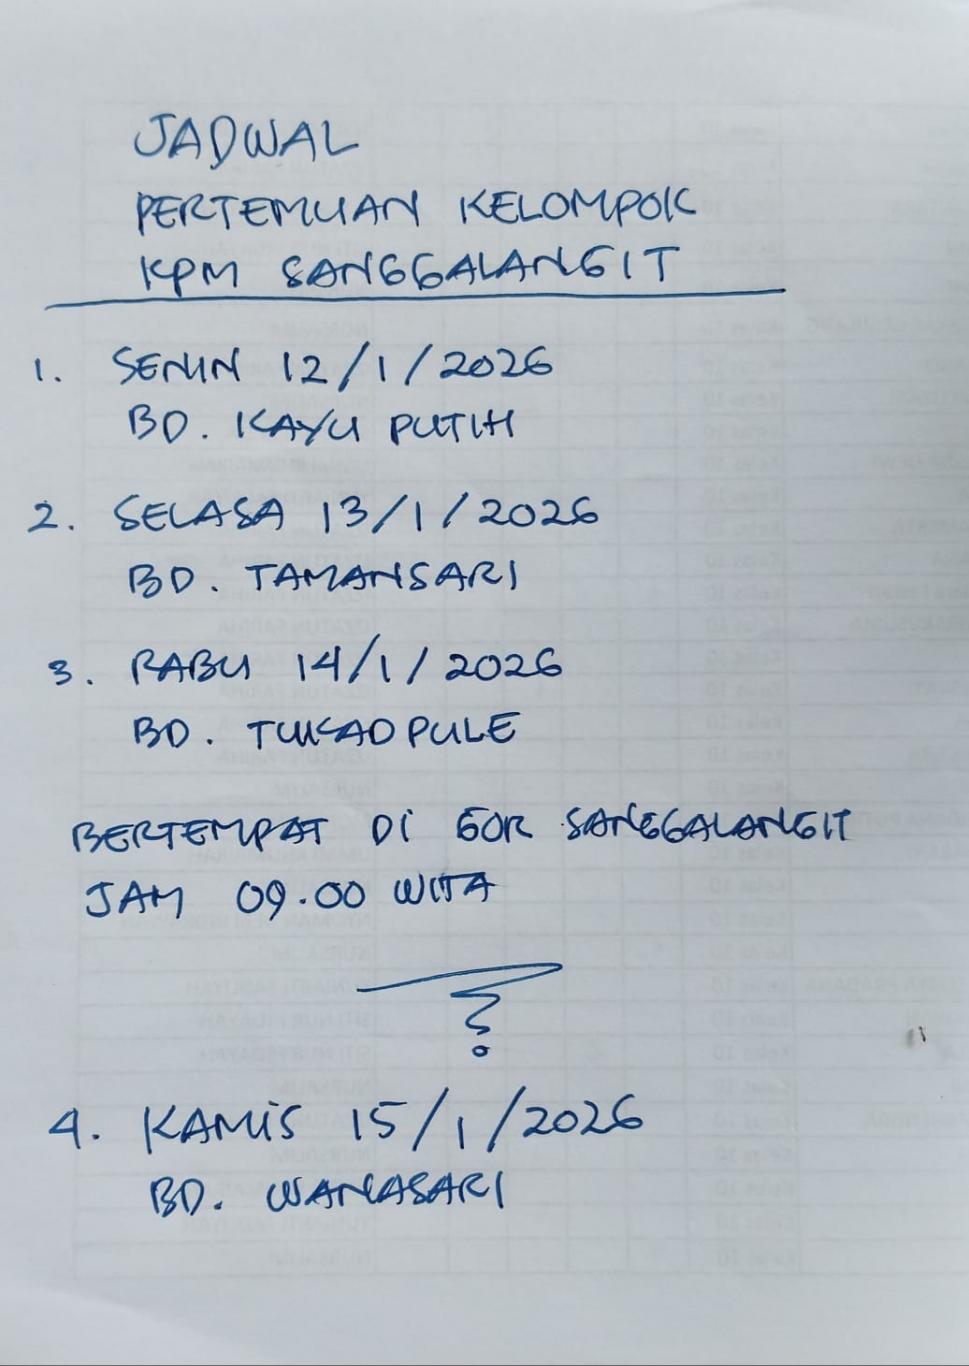 JADWAL
PERTEMUAN KELOMPOK
KPM SANGGALANGIT
1. SENIN 12/1/2026
BD. KAYU PUTIH
2. SELASA 13/1/2026
BD. TAMANSARI
3. RABU 14/1/2026
BD. TUKADPULE
BERTEMPAT DI GOR SANGGALANGIT
JAM 09.00 WITA
4. KAMIS 15/1/2026
BD. WANASARI